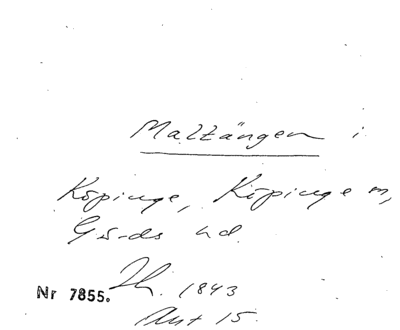 Maltängen i
Köpinge, Köpinge sn,
Gärds hd.
Nr 7855. 1843
Akt 15.